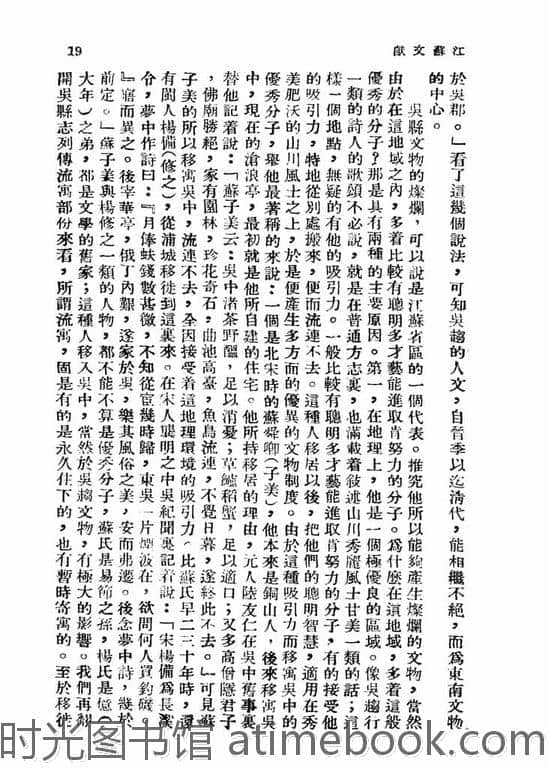 江蘇文獻
19
於吳郡。」看了這幾個說法,可知吳趨的人文,自晉季以迄清代,能相繼不絕,而爲東南文物
的中心。
吳縣文物的燦爛,可以說是江蘇省區的一個代表。推究他所以能夠產生燦爛的文物,當然
由於在這地域之內,多着比較有聰明多才藝能進取肯努力的分子。爲什麼在這地域,多着這般
優秀的分子?那是具有兩種的主要原因。第一,在地理上,他是一個極優良的區域。像吳趨行
一類的詩人的歌頌不必說,就是在普通方志裏,也滿載着敍述山川秀麗風土甘美一類的話;這
樣一個地點,無疑的有他的吸引力。一般比較有聰明多才藝能進取肯努力的分子,有的接受他
的吸引力,特地從別處搬來,便而流連不去。這種人移居以後,把他們的聰明智慧,適用在秀
美肥沃的山川風土之上,於是便產生多方面的優異的文物制度。由於這種吸引力而移寓吳中的
優秀分子,舉他最著稱的來說:一個是北宋時的蘇舜卿(子美),他本來是銅山人,後來移寓吳
中,現在的滄浪亭,最初就是他所自建的住宅。他所持移居的理由,元人陸友仁在吳中舊事裏
替他記着說:「蘇子美云:吳中渚茶野醞,足以消憂;蓴鱸稻蟹,足以適口;又多高僧隱君子
,佛廟勝絕,家有園林,珍花奇石,曲池高臺,魚鳥流連,不覺日暮,遂終此不去。」可見蘇
子美的所以移寓吳中,流連不去,全因接受着這地理環境的吸引力。比蘇氏早二三十年時,還
有閩人楊備(修之),從浦城移徙到這裏來。在宋人襲明之中吳紀聞裏記着說:「宋楊備爲長溪
令,夢中作詩曰:『月俸蚨錢數甚微,不知從宦幾時歸,東吳一片煙波在,欲問何人買釣磯。
』寤而異之。後宰華亭,俄丁內艱,遂家於吳,樂其風俗之美,安而弗遷。後念夢中詩,幾於
前定。」蘇子美與楊修之一類的人物,都不能不算是優秀分子,蘇氏是易簡之孫,楊氏是億(
大年)之弟,都是文學的舊家;這種人移入吳中,當然於吳趨文物,有極大的影響。我們再翻
開吳縣志列傳流寓部份來看,所謂流寓,固是有的是永久住下的,也有暫時寄寓的。至於移徙
时光图书馆 atimebook.com